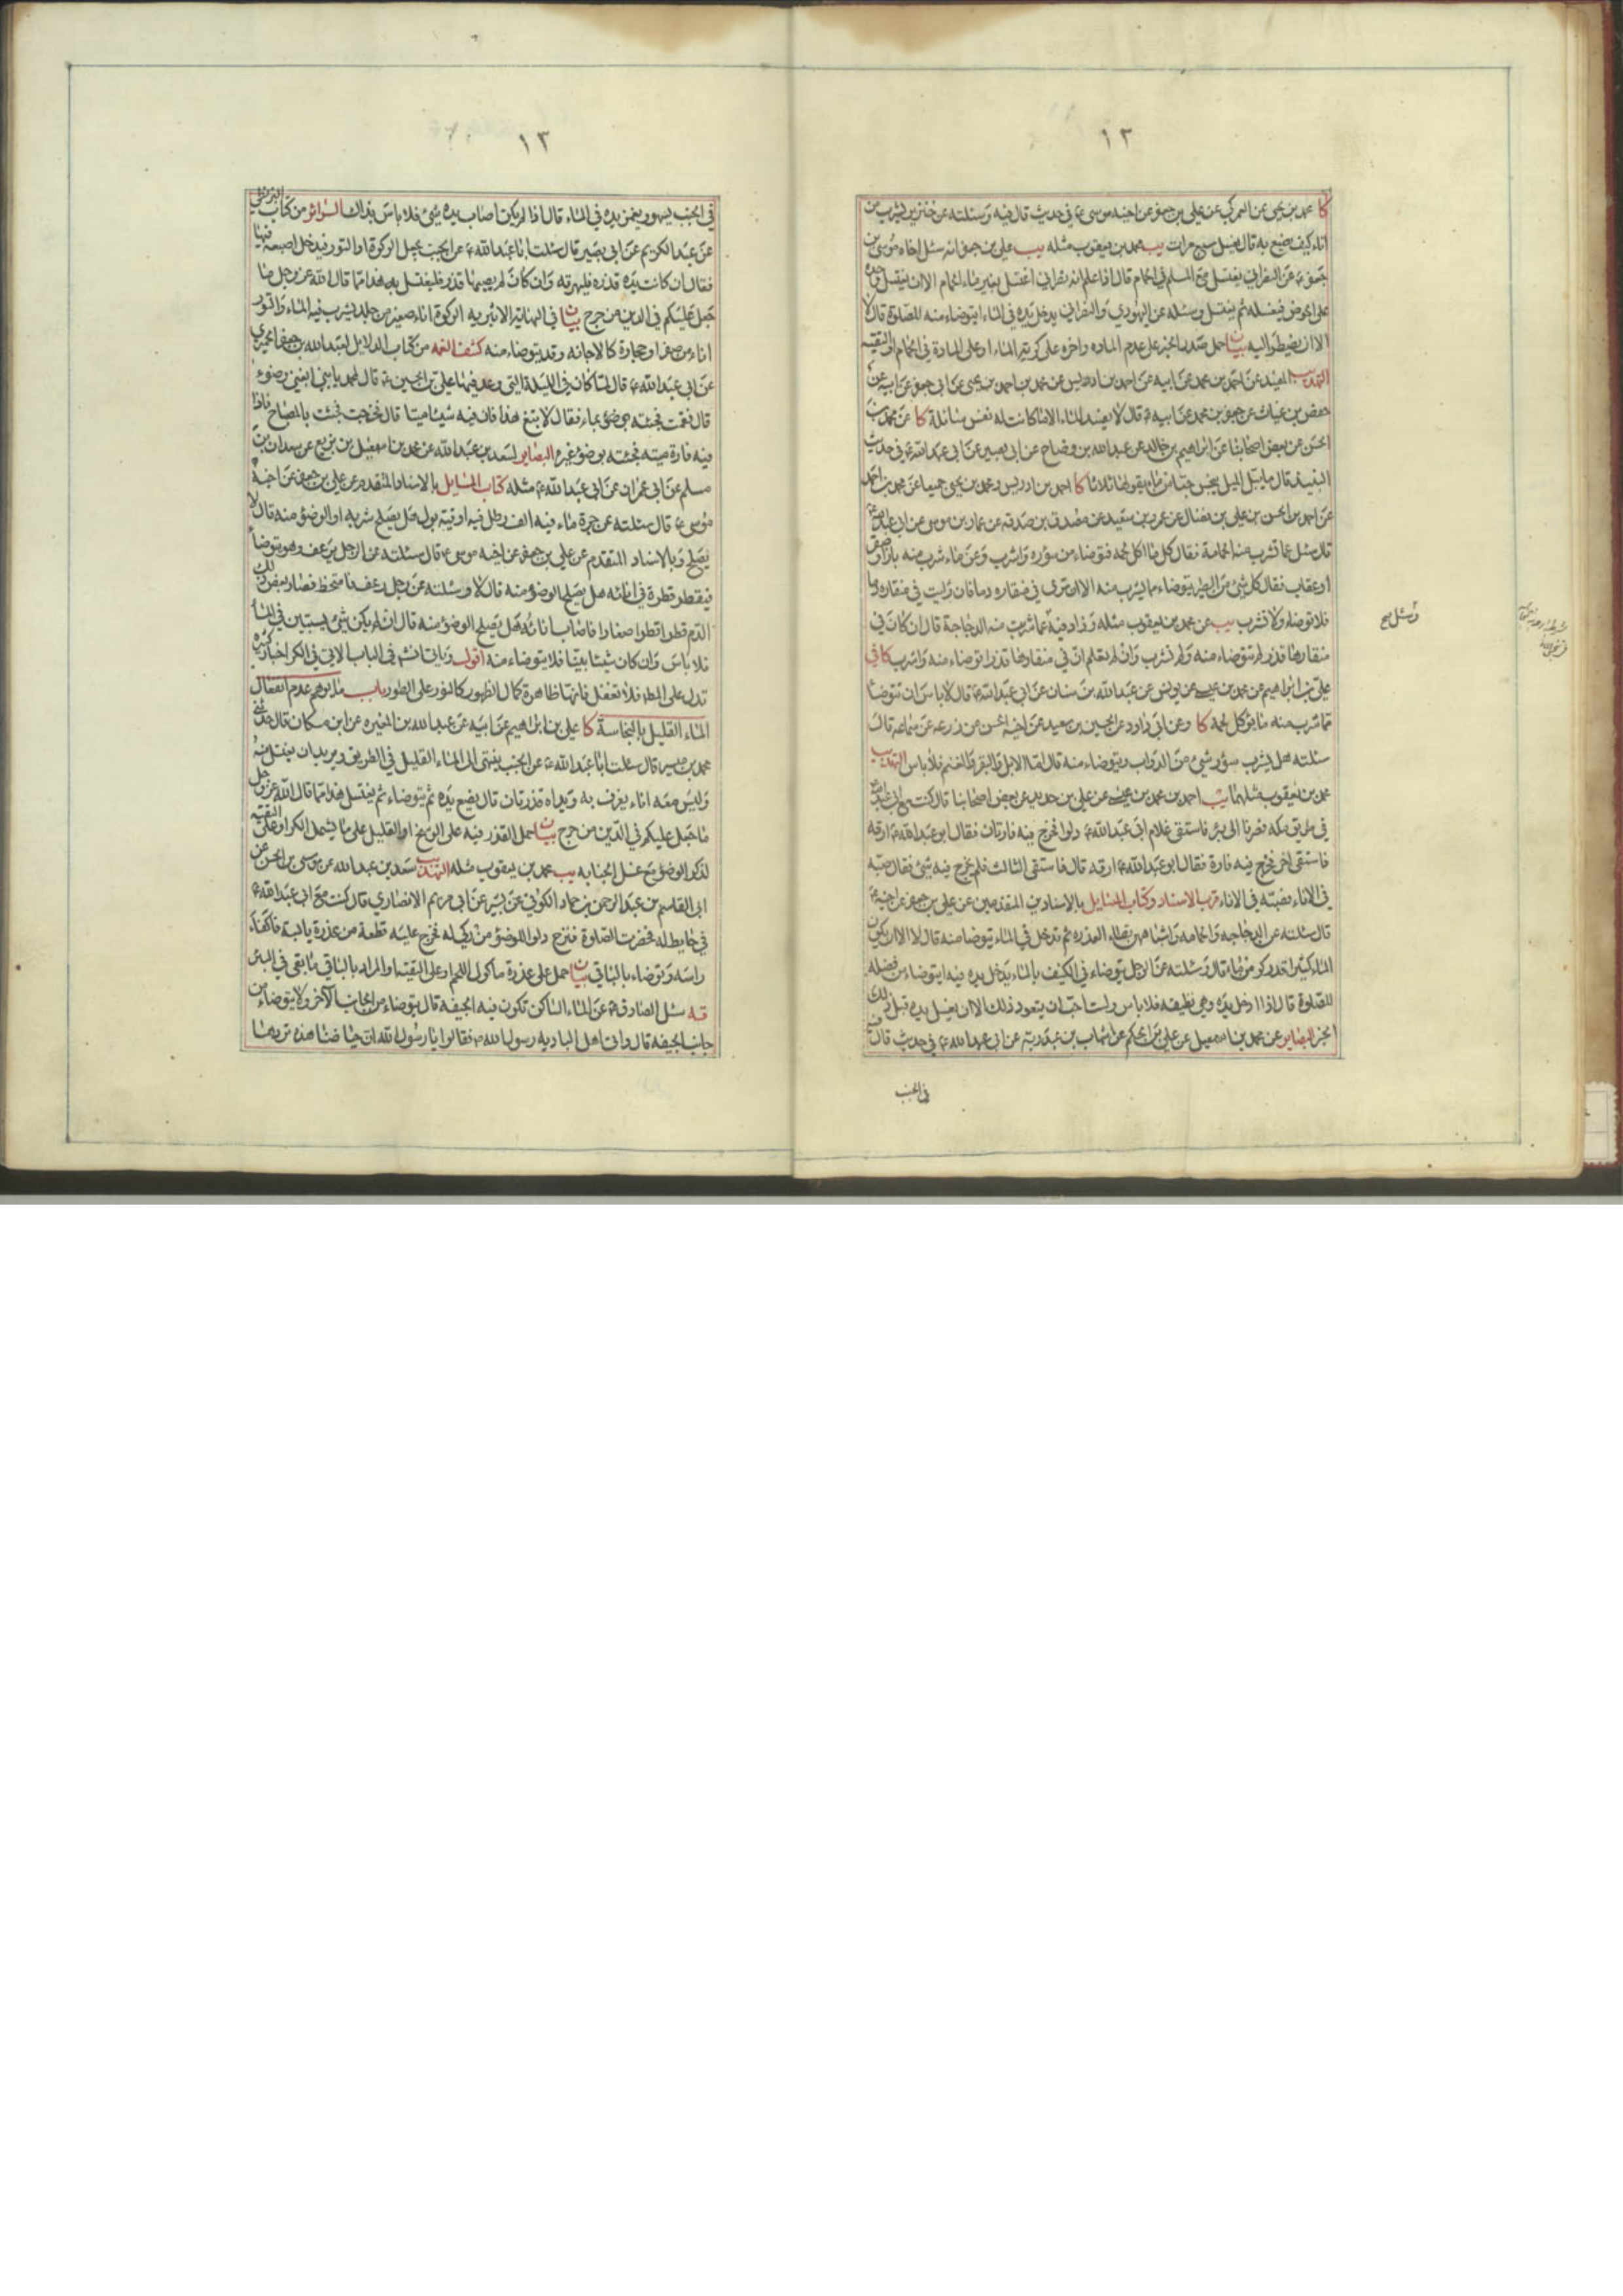 ١٢
كا محمد بن يحيى عن العمركي عن علي بن جعفر عن اخيه موسى ع في حديث قال فيه وسئلته عن خنزير يشرب من
اناء كيف يصنع به قال يغسل سبع مرات يب محمد بن يعقوب مثله يب علي بن جعفر انه سئل اخاه موسى بن
جعفر ع عن النصراني يغتسل مع المسلم في الحمام قال اذا علم انه نصراني اغتسل بغير ماء الحمام الا ان يغتسل وحده
على الحوض فيغسله ثم يغتسل وسئله عن اليهودي والنصراني يدخل يده في الماء ايتوضاء منه للصلوة قال لا
الا ان يضطر اليه بيان حمل صدر الخبر على عدم المادة واخره على كرية الماء او على المادة في الحمام او التقية
التهذيب المفيد عن احمد بن محمد عن ابيه عن احمد بن ادريس عن محمد بن احمد بن يحيى عن ابي جعفر عن ابيه عن
حفص بن غياث عن جعفر بن محمد عن ابيه ع قال لا يفسد الماء الا ما كانت له نفس سائلة كا عن محمد بن
الحسن عن بعض اصحابنا عن ابراهيم بن خالد عن عبد الله بن وضاح عن ابي بصير عن ابي عبد الله ع في حديث
النبيذ قال ما يبل الميل ينجس حبا من ماء يقولها ثلاثا كا احمد بن ادريس ومحمد بن يحيى جميعا عن محمد بن احمد
عن احمد بن الحسن بن علي بن فضال عن عمرو بن سعيد عن مصدق بن صدقه عن عمار بن موسى عن ابي عبد الله ع
قال سئل عما تشرب منه الحمامة فقال كل ما اكل لحمه فتوضاء من سؤره واشرب وعن ماء شرب منه باز او صقر
او عقاب فقال كل شئ من الطير يتوضاء مما يشرب منه الا ان ترى في منقاره دما فان رايت في منقاره دما
فلا توضاء ولا تشرب يب عن محمد بن يعقوب مثله وزاد فيه عما شربت منه الدجاجة قال ان كان في
منقارها قذر لم تتوضاء منه ولم تشرب وان لم تعلم ان في منقارها قذرا توضاء منه واشرب كافي
علي بن ابراهيم عن محمد بن عيسى عن يونس عن عبد الله بن سنان عن ابي عبد الله ع قال لا باس ان تتوضا
مما شرب منه ما يؤكل لحمه كا وعن ابي داود عن الحسين بن سعيد عن اخيه الحسن عن زرعه عن سماعه قال
سئلته هل يشرب سؤر شئ من الدواب ويتوضاء منه قال اما الابل والبقر والغنم فلا باس التهذيب
محمد بن يعقوب مثلهما يب احمد بن محمد بن عيسى عن علي بن حديد عن بعض اصحابنا قال كنت مع ابي عبد الله ع
في طريق مكه فصرنا الى بئر فاستقى غلام ابي عبد الله ع دلوا فخرج فيه فارتان فقال ابو عبد الله ع ارقه
فاستقى اخر فخرج فيه فارة فقال ابو عبد الله ع ارقه قال فاستقى الثالث فلم يخرج فيه شئ فقال صبه
في الاناء فصبته في الاناء قرب الاسناد وكتاب المسايل بالاسنادين المتقدمين عن علي بن جعفر عن اخيه ع
قال سئلته عن الدجاجه والحمامه واشباههن تطاء العذره ثم تدخل في الماء يتوضا منه قال لا الا ان يكون
الماء كثيرا قدر كر من ماء قال وسئلته عن الرجل يتوضاء في الكنيف بالماء يدخل يده فيه ايتوضاء من فضله
للصلوة قال اذا ادخل يده وهي نظيفه فلا باس ولست احب ان يتعود ذلك الا ان يغسل يده قبل ذلك
البصاير عن محمد بن اسمعيل عن علي بن الحكم عن شهاب بن عبد ربه عن ابي عبد الله ع في حديث قال
في الجنب
١٣
في الجنب يسهو ويغمز يده في الماء قال اذا لم يكن اصاب يده شئ فلا باس بذاك السرائر من كتاب البزنطي
عن عبد الكريم عن ابي بصير قال سئلت ابا عبد الله ع عن الجنب يجعل الركوة او التور فيدخل اصبعه فيها
فقال ان كانت يده قذره فليهرقه وان كان لم يصبها قذر فليغتسل به هذا مما قال الله عز وجل ما
جعل عليكم في الدين من حرج بيان في النهاية الاثيريه الركوة اناء صغير من جلد يشرب فيه الماء والتور
اناء من صفر او حجارة كالاجانه وقد يتوضاء منه كشف الغمه من كتاب الدلايل لعبد الله بن جعفر الحميري
عن ابي عبد الله ع قال لما كان في الليلة التي وعد فيها علي بن الحسين ع قال لمحمد يا بني ابغني وضوء
قال فقمت فجئته بوضوء بماء فقال لا تبغ هذا فان فيه شيئا ميتا قال فخرجت فجئت بالمصباح فاذا
فيه فارة ميته فجئته بوضوء غيره البصاير لسعد بن عبد الله عن محمد بن اسمعيل بن بزيع عن سعدان بن
مسلم عن ابي عمران عن ابي عبد الله ع مثله كتاب المسايل بالاسناد المتقدم عن علي بن جعفر عن اخيه
موسى ع قال سئلته عن جرة ماء فيه الف رطل فيه اوقية بول هل يصلح شربه او الوضوء منه قال لا
يصلح وبالاسناد المتقدم عن علي بن جعفر عن اخيه موسى ع قال سئلته عن الرجل يرعف وهو يتوضأ
فيقطر قطرة في انائه هل يصلح الوضوء منه قال لا وسئلته عن رجل رعف فامتخط فصار بعض ذلك
الدم قطرا قطرا صغارا فاصاب اناءه هل يصلح الوضوء منه قال ان لم يكن شئ يستبين في الماء
فلا باس وان كان شيئا بينا فلا يتوضاء منه اقول وياتي في الباب الاتي في الكر اخبار كثيره
تدل على المط فلا تغفل فانها ظاهرة كمال الظهور كالنور على الطور باب ما يوهم عدم انفعال
الماء القليل بالنجاسة كا علي بن ابراهيم عن ابيه عن عبد الله بن المغيره عن ابن مسكان قال حدثني
محمد بن ميسر قال سئلت ابا عبد الله ع عن الجنب ينتهي الى الماء القليل في الطريق ويريد ان يغتسل منه
وليس معه اناء يغرف به ويداه قذرتان قال يضع يده ثم يتوضاء ثم يغتسل هذا مما قال الله عز وجل
ما جعل عليكم في الدين من حرج بيان حمل القذر فيه على الوسخ او القليل على ما يشمل الكر او على التقيه
لذكر الوضوء مع غسل الجنابه يب محمد بن يعقوب مثله التهذيب سعد بن عبد الله عن موسى بن الحسن عن
ابي القاسم بن عبد الرحمن بن حماد الكوفي عن بشير عن ابي مريم الانصاري قال كنت مع ابي عبد الله ع
في حايط له فحضرت الصلوة فنزح دلوا للوضوء من ركي له فخرج عليه قطعة من عذرة يابسة فاكفاء
راسه وتوضاء بالباقي بيان حمل على عذرة ماكول اللحم او على التقيه او المراد بالباقي ما بقي في البئر
قه سئل الصادق ع عن الماء الساكن تكون فيه الجيفه قال يتوضاء من الجانب الاخر ولا يتوضاء من
جانب الجيفه قال واتى اهل الباديه رسول الله ص فقالوا يا رسول الله ان حياضنا هذه تردها